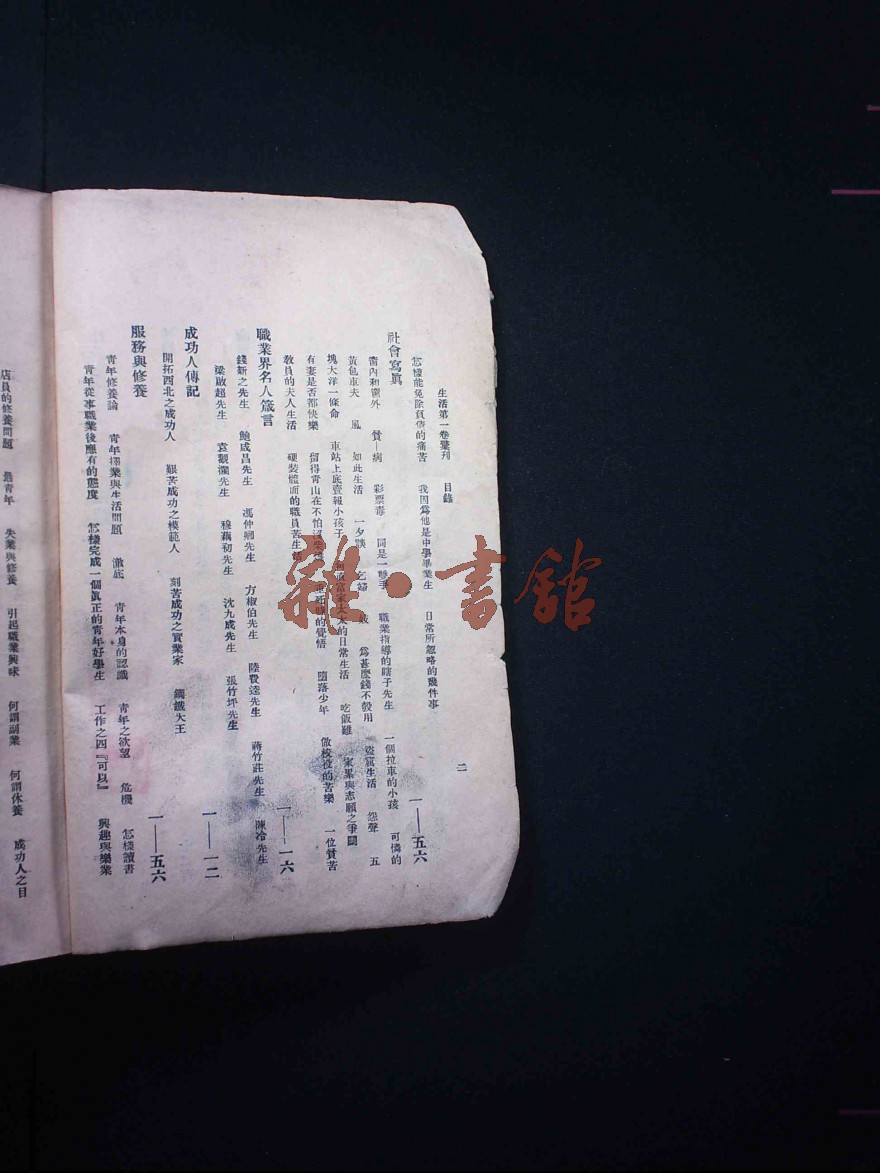 生活第一卷彙刊 目錄 二
怎樣能免除負債的痛苦 我因爲他是中學畢業生 日常所忽略的幾件事
社會寫眞 一——五六
窗內和窗外 貧—病 彩票毒 同是一雙手 職業指導的瞎子先生 一個拉車的小孩 可憐的
黃包車夫 風 如此生活 一夕談 乞婦 爲甚麼錢不彀用 盜窟生活 怨聲 五
塊大洋一條命 車站上底賣報小孩子 富家太太的日常生活 吃飯難 家累與志願之爭鬪
有妻是否都快樂 留得靑山在不怕沒柴燒 的覺悟 墮落少年 做校役的苦樂 一位貧苦
敎員的夫人生活 硬裝體面的職員苦生活
職業界名人箴言 一——一六
錢新之先生 鮑咸昌先生 馮仲卿先生 方椒伯先生 陸費逵先生 蔣竹莊先生 陳冷先生
梁啟超先生 袁觀瀾先生 穆藕初先生 沈九成先生 張竹坪先生
成功人傳記 一——一二
開拓西北之成功人 艱苦成功之模範人 刻苦成功之實業家 鋼鐵大王
服務與修養 一——五六
靑年修養論 靑年擇業與生活問題 澈底 靑年本身的認識 靑年之欲望 危機 怎樣讀書
靑年從事職業後應有的態度 怎樣完成一個眞正的靑年好學生 工作之四『可以』 興趣與樂業
店員的修養問題 靑年 失業與修養 引起職業興味 何謂副業 何謂休養 成功人之目
雜·書館